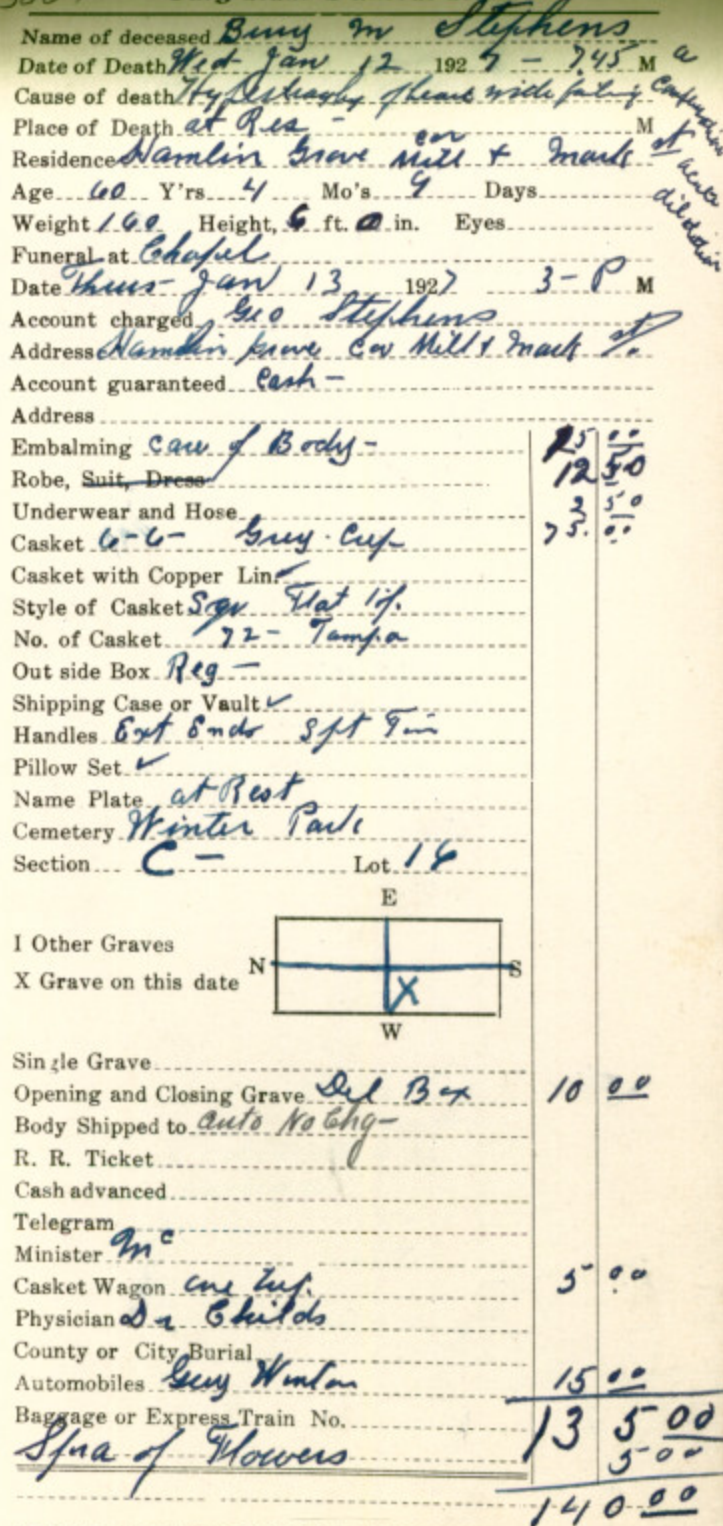 Name of deceased Benj M Stephens
Date of Death Wed Jan 12 1927 - 745 M
Cause of death Hypertrophy of heart with
Place of Death at Res - M
Residence Hamlin Grove cor Mill & Mark st
a
acute
Age 60 Y'rs 4 Mo's 9 Days
Weight 160 Height, 6 ft. 0 in. Eyes
Funeral at Chapel
Date Thurs- Jan 13 1927 3- P M
Account charged Geo Stephens
Address Hamlin Grove Cor Mill & Mark St.
Account guaranteed Cash -
Address
Embalming Care of Body - 25 00
Robe, Suit, Dress 12 50
Underwear and Hose 2 50
Casket 6-6- Grey Crep 75. 00
Casket with Copper Lin. ✓
Style of Casket Sqr Flat
No. of Casket 72- Tampa
Out side Box Reg -
Shipping Case or Vault ✓
Handles Ext Ends
Pillow Set ✓
Name Plate at Rest
Cemetery Winter Park
Section C - Lot 16
E
I Other Graves
N S
X Grave on this date
X
W
Single Grave
Opening and Closing Grave Del Box 10 00
Body Shipped to auto No Chg-
R. R. Ticket
Cash advanced
Telegram
Minister Mc
Casket Wagon 5 00
Physician Dr Childs
County or City Burial
Automobiles Grey Winton 15 00
Baggage or Express Train No. 135 00
Spra of Flowers 5 00
140 00